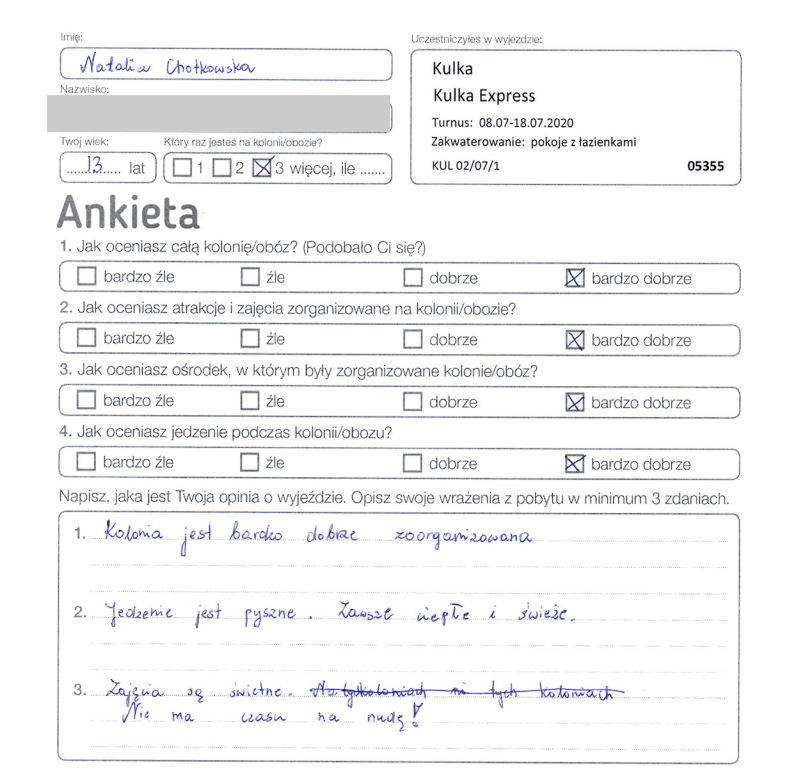 Imię:
Natalia Chotkowska
Nazwisko:
Twój wiek:
13 lat
Który raz jesteś na kolonii/obozie?
1 2 3 więcej, ile .......
Uczestniczyłeś w wyjeździe:
Kulka
Kulka Express
Turnus: 08.07-18.07.2020
Zakwaterowanie: pokoje z łazienkami
KUL 02/07/1 05355
Ankieta
1. Jak oceniasz całą kolonię/obóz? (Podobało Ci się?)
bardzo źle źle dobrze bardzo dobrze
2. Jak oceniasz atrakcje i zajęcia zorganizowane na kolonii/obozie?
bardzo źle źle dobrze bardzo dobrze
3. Jak oceniasz ośrodek, w którym były zorganizowane kolonie/obóz?
bardzo źle źle dobrze bardzo dobrze
4. Jak oceniasz jedzenie podczas kolonii/obozu?
bardzo źle źle dobrze bardzo dobrze
Napisz, jaka jest Twoja opinia o wyjeździe. Opisz swoje wrażenia z pobytu w minimum 3 zdaniach.
1. Kolonia jest bardko dobrze zoorganizowana
2. Jedzenie jest pyszne. Zawsze ciepłe i świeże.
3. Zajęcia są świetne. tych koloniach
Nie ma czasu na nudę!